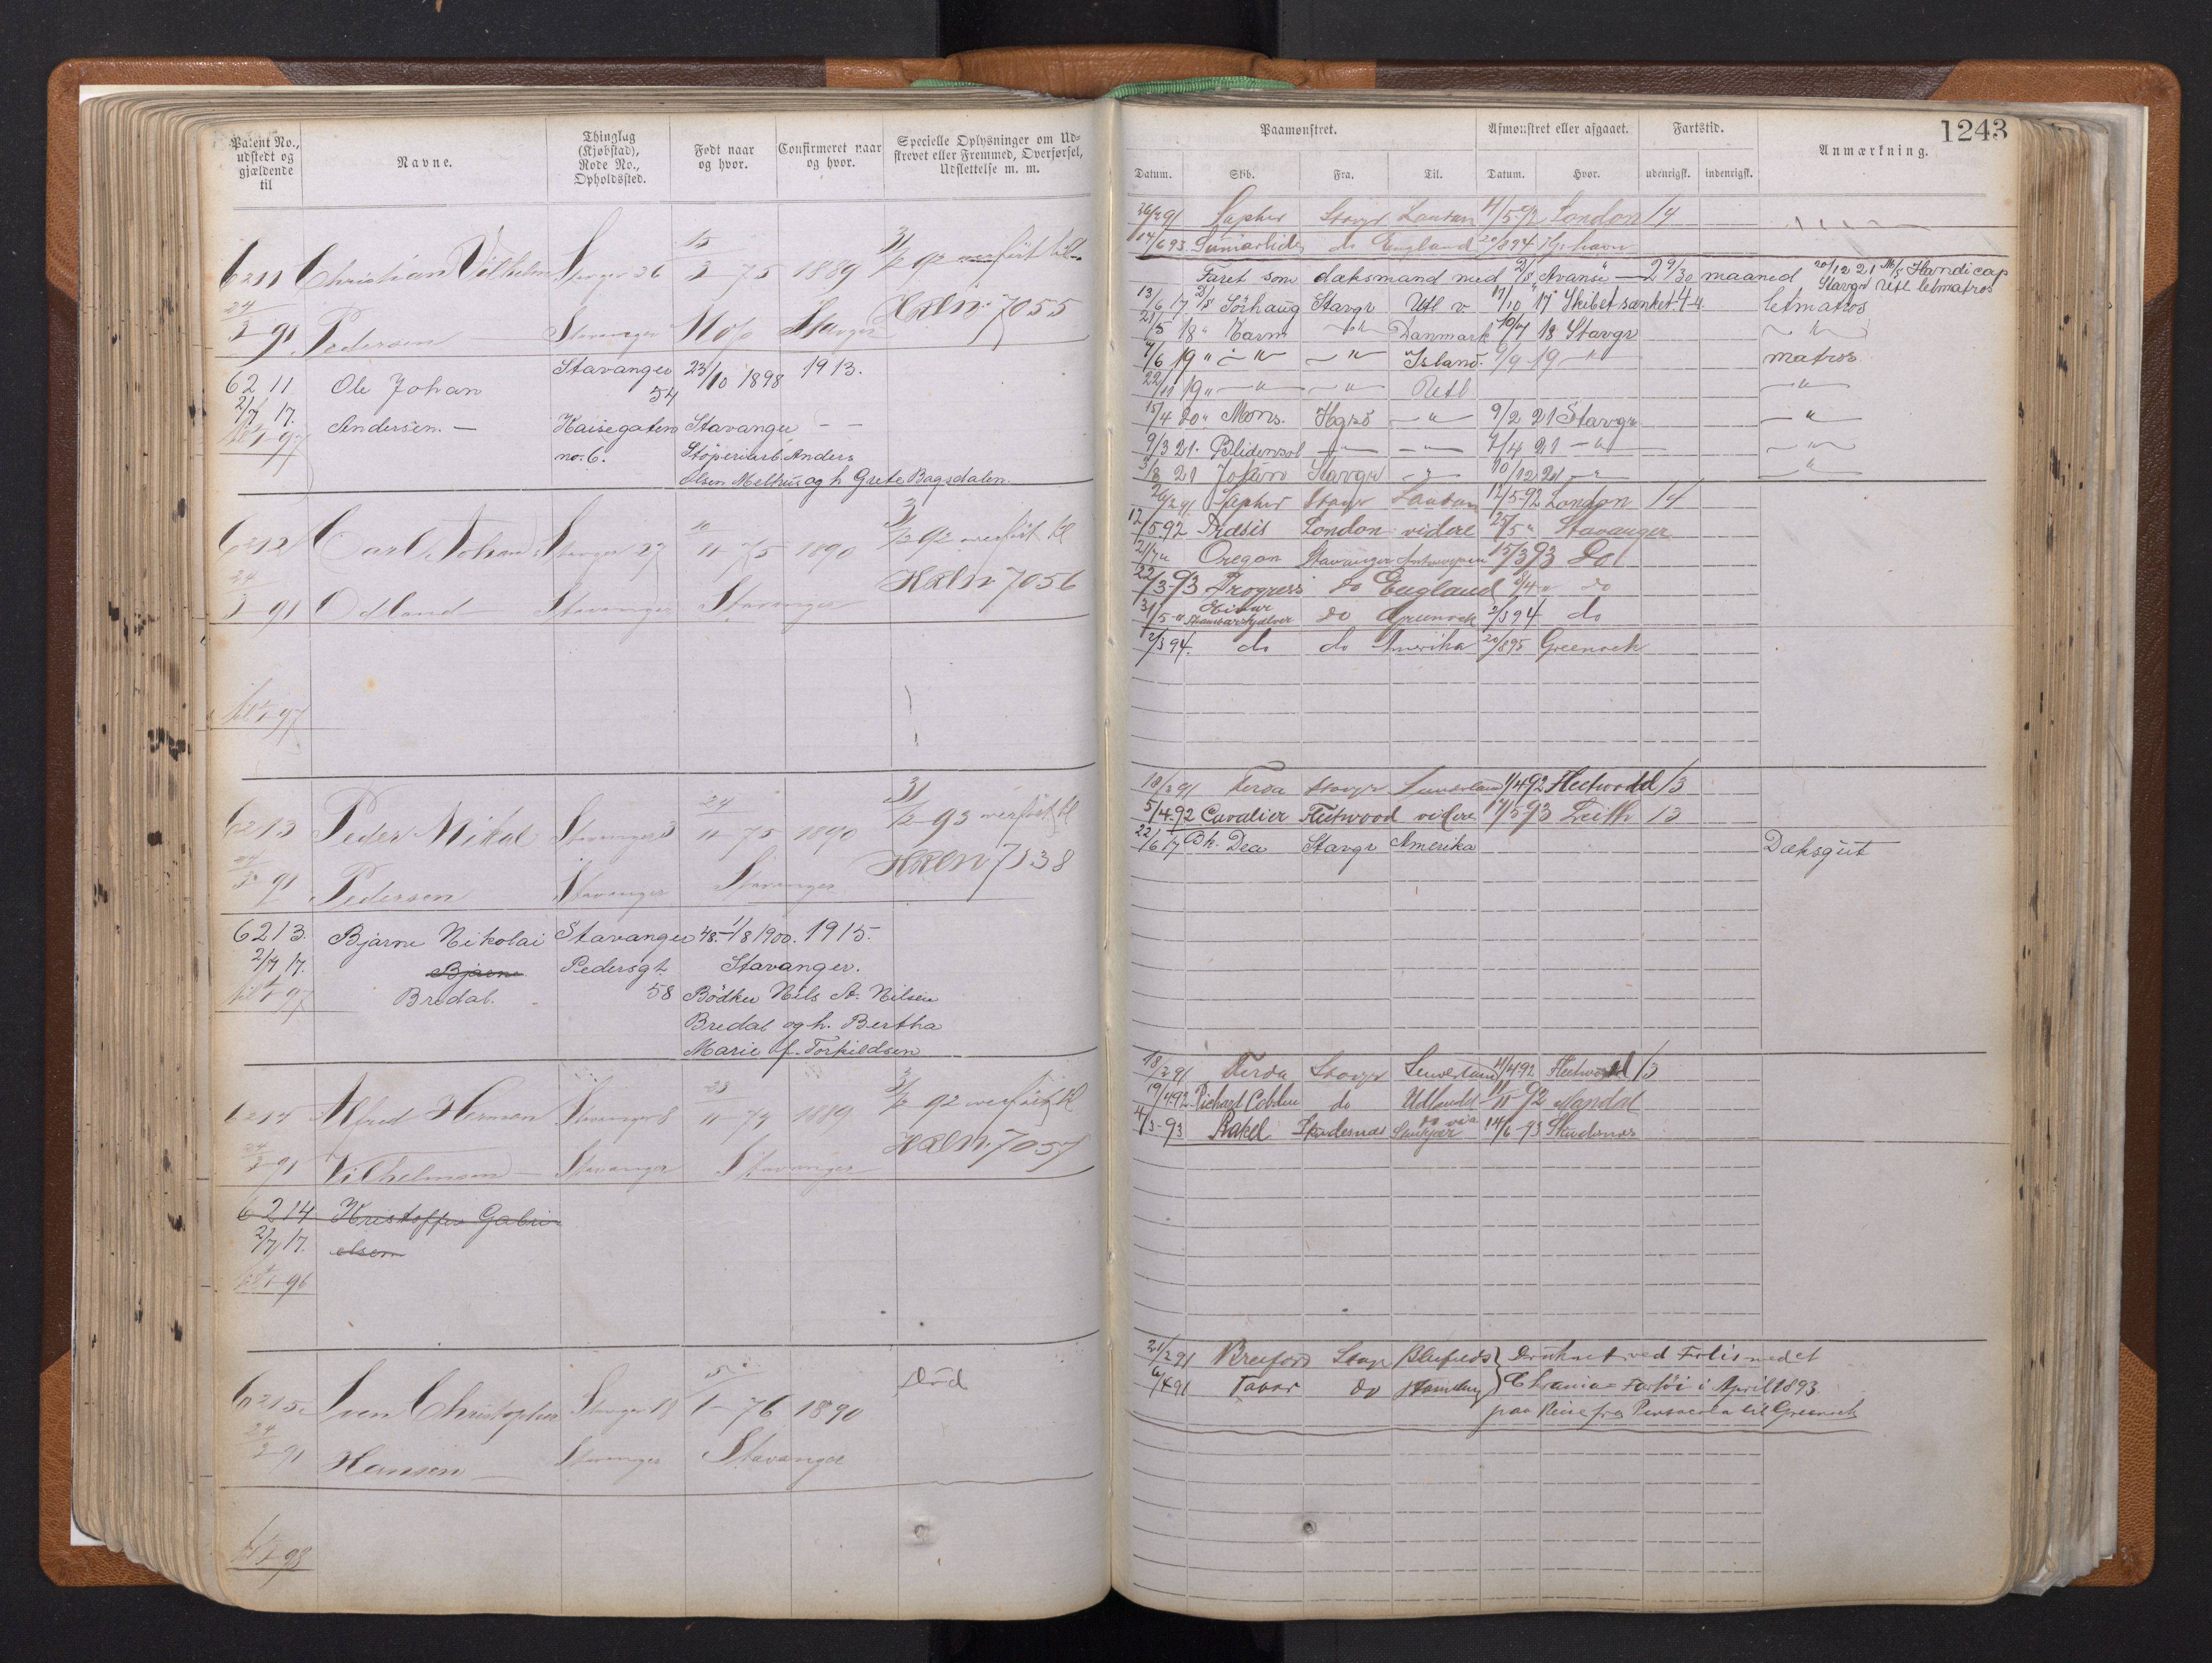 Patent No., udstedt og gjældende til
Navne.
Thinglag (Kjøbstad), Rode No., Opholdssted.
Født naar og hvor.
Confirmeret naar og hvor.
Specielle Oplysninger om Udskrevet eller Fremmed, Overførsel, Udslettelse m. m.
6211 Christian Vilhelm Stavger 26 15/3 75 1889 31/12 92 overført til
24/3 91 Pedersen Stavanger Stavanger Hæl N. 7055
6211 Ole Johan Stavanger 54 23/10 1898 1913.
2/7 17. Andersen. — Kaisegaten no. 6. Stavanger — —
til 1/1 97
Støperiarb. Anders
Olsen Melhus og h. Grete Bagsdalen.
6212 Carl Johan Stavger 27 11 75 1890 31/12 92 overført til
24/3 91 Odland Stavanger Stavanger Hæl N 7056
til 1/1 97
6213 Peder Mikal Stavanger 3 24/11 75 1890 31/12 93 overført til
24/3 91 Pedersen Stavanger Stavanger Hæl N 7138
6213. Bjarne Nikolai Stavanger 48. 1/8 1900. 1915.
2/7 17. Bjarne Pedersgt. Stavanger.
til 1/1 97 Bredal. 58 Bødker Nils A. Nilsen
Bredal og h. Bertha
Marie f. Torkildsen
6214 Alfred Herman Stavanger 8 28/11 74 1889 31/12 92 overført til
24/3 91 Vilhelmsen Stavanger Stavanger Hæl N. 7057
6214 Kristoffer Gabri-
2/7 17. elsen
til 1/1 96
6215 Sven Christopher Stavger 18 5/1 76 1890 Død
24/3 91 Hansen Stavanger Stavanger
til 1/1 98
1243
Paamønstret.
Afmønstret eller afgaaet.
Fartstid.
Anmærkning.
Datum. Skb. Fra. Til. Datum. Hvor. udenrigsk. indenrigsk.
26/2 91 Sapher Stavgr London 14
14/6 93 do England
Faret som dæksmand med D/S "Avanse" — 2 9/30 maaned 20/12 21 M/S Handicap
Stavgr Utl letmatros
13/6 17 D/S Sørhaug Stavgr Utl v. 17/10 17 Skibet sænket. 4-4. letmatros
21/5 18 " Karm — " — Danmark 10/7 18 Stavgr — " —
7/6 19 " — " — — " — Island. 9/9 19 — " — matros
22/11 19 " — " — — " — Utl — " —
15/4 20 " Mons. Hgsd — " — 9/2 21 Stavgr — " —
9/3 21. Blidensol — " — — " — 7/4 21 — " — — " —
3/8 21 Stavgr — " — 10/12 21 — " — — " —
26/2 91 Sapher Stavgr 12/5-92 London 14
12/5 92 London videre 25/5 " Stavanger
21/7 " Oregon Stavanger Antwerpen 15/3 93 Do
22/3-93 Progress do England 8/4 " do
31/5 " Einar Tambarskjælver do Greenock 2/3 94 do
2/3 94. do do Amerika 20/8 95 Greenock
18/3 91 Ferda Stavgr Sunderland 11/4 92 Fleetwood 13
5/4 92 Cavalier Fleetwood videre 14/5 93 Leith 13
22/6 17 Bk. Dea Stavgr Amerika Dæksgut
18/3 91 Ferda Stavgr Sunderland 11/4 92 Fleetwood 13
19/4 92 Richard Cobden do Udlandet 11/11 92 Mandal
4/3-93 Rakel Skudesnæs do via 14/6-93 Skudesnæs
21/2 91 Stavgr Bluefields } Druknet ved Forlisnedet
6/4 91 Tabor do Hamburg } Chrania- Fartøi i April 1893.
paa Reise fra Pensacola til Greenock